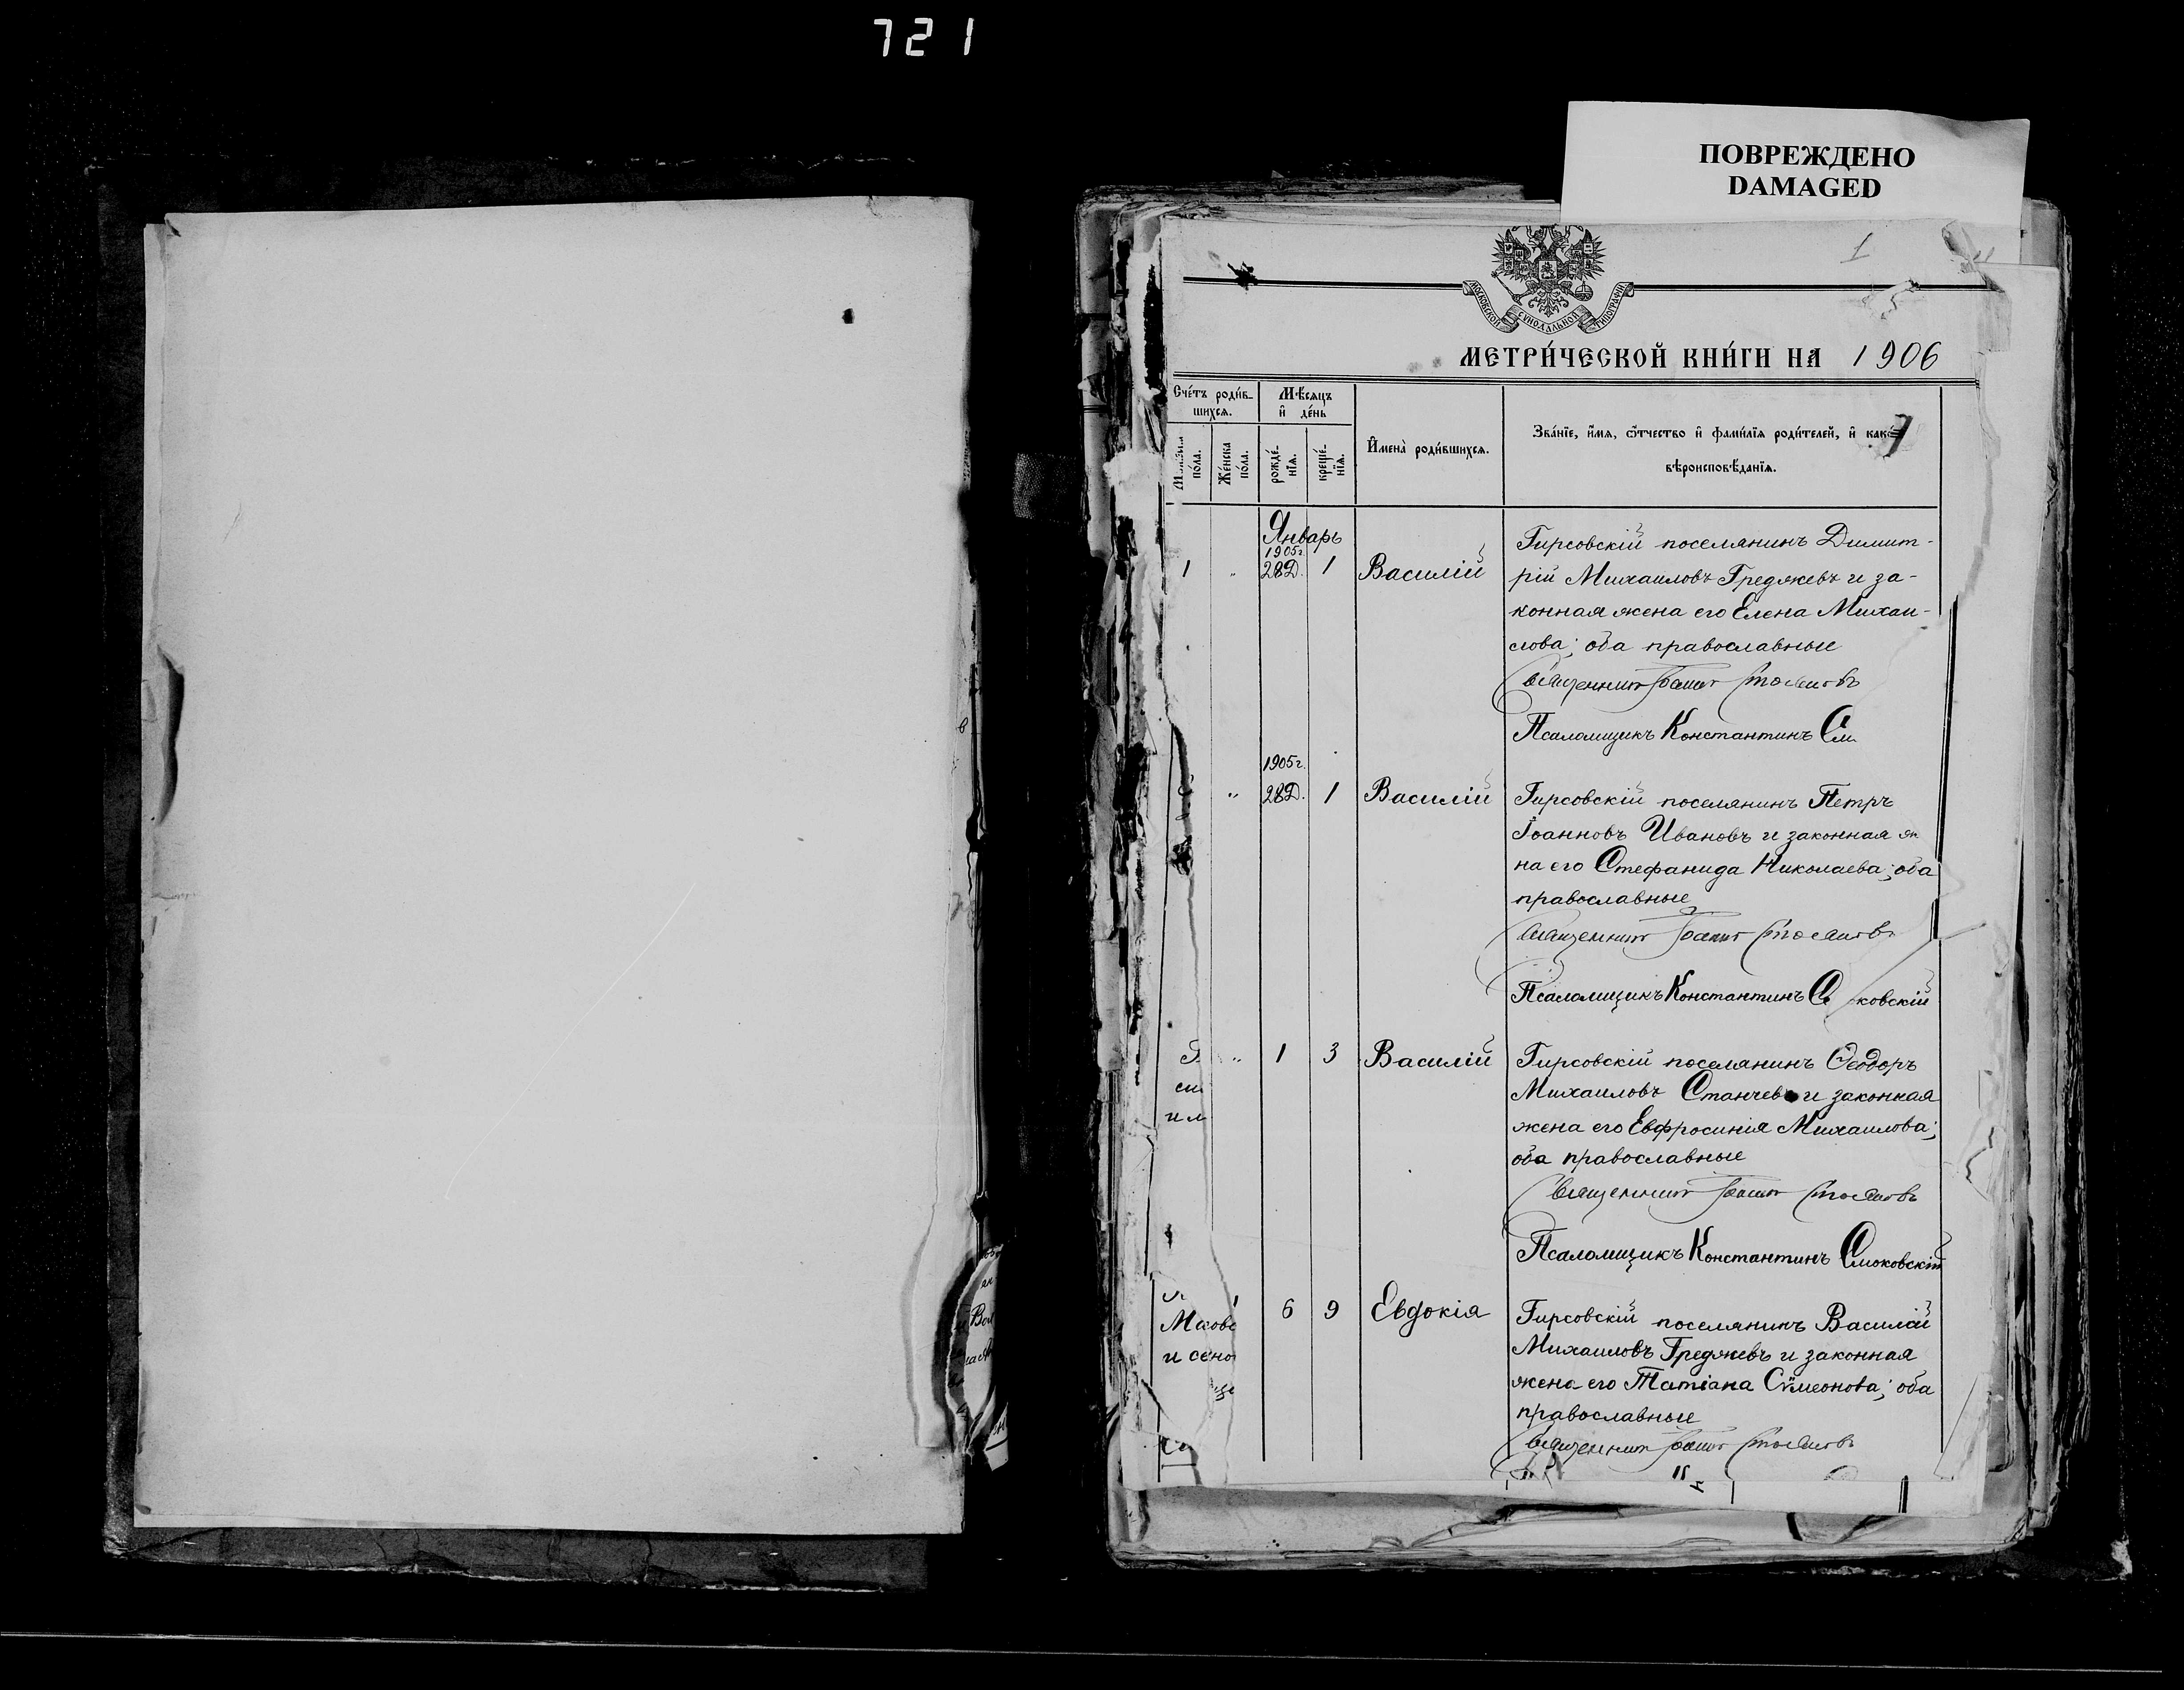 721
ПОВРЕЖДЕНО
DAMAGED
1
МОСКОВСКОЙ СѴНОДАЛЬНОЙ ТИПОГРАФІИ
МЕТРИ́ЧЕСКОЙ КНИ́ГИ НА 1906
Сче́тъ роди́в-
шихся.
Мѣ́сяцъ
и҆ де́нь
по́ла.
Же́нска
по́ла.
рожде́-
нїя.
креще́-
нїя.
И҆мена̀ роди́вшихся.
Зва́нїе, и҆́мя, ѻ҆́тчество и҆ фами́лїя роди́телей, и҆ како́
вѣроисповѣ́данїя.
Январь
1 " 1905г. 28Д. 1 Василій
Гирсовскій поселянинъ Димит-
рій Михаиловъ Греджевъ и за-
конная жена его Елена Михаи-
лова; оба православные
Священникъ Іоаннъ Стояновъ
Псаломщикъ Константинъ См
1905г.
" 28Д. 1 Василій Гирсовскій поселянинъ Петръ
Іоанновъ Ивановъ и законная
на его Стефанида Николаева; оба
православные
Священникъ Іоаннъ Стояновъ
Псаломщикъ Константинъ С ковскій
" 1 3 Василій Гирсовскій поселянинъ Ѳеодоръ
Михаиловъ Станчевъ и законная
жена его Евфросинія Михаилова;
оба православные
Священникъ Іоаннъ Стояновъ
Псаломщикъ Константинъ Смоковскій
6 9 Евдокія Гирсовскій поселянинъ Василій
Михаиловъ Греджевъ и законная
жена его Татіана Сѵмеонова; оба
православные
Священникъ Іоаннъ Стояновъ